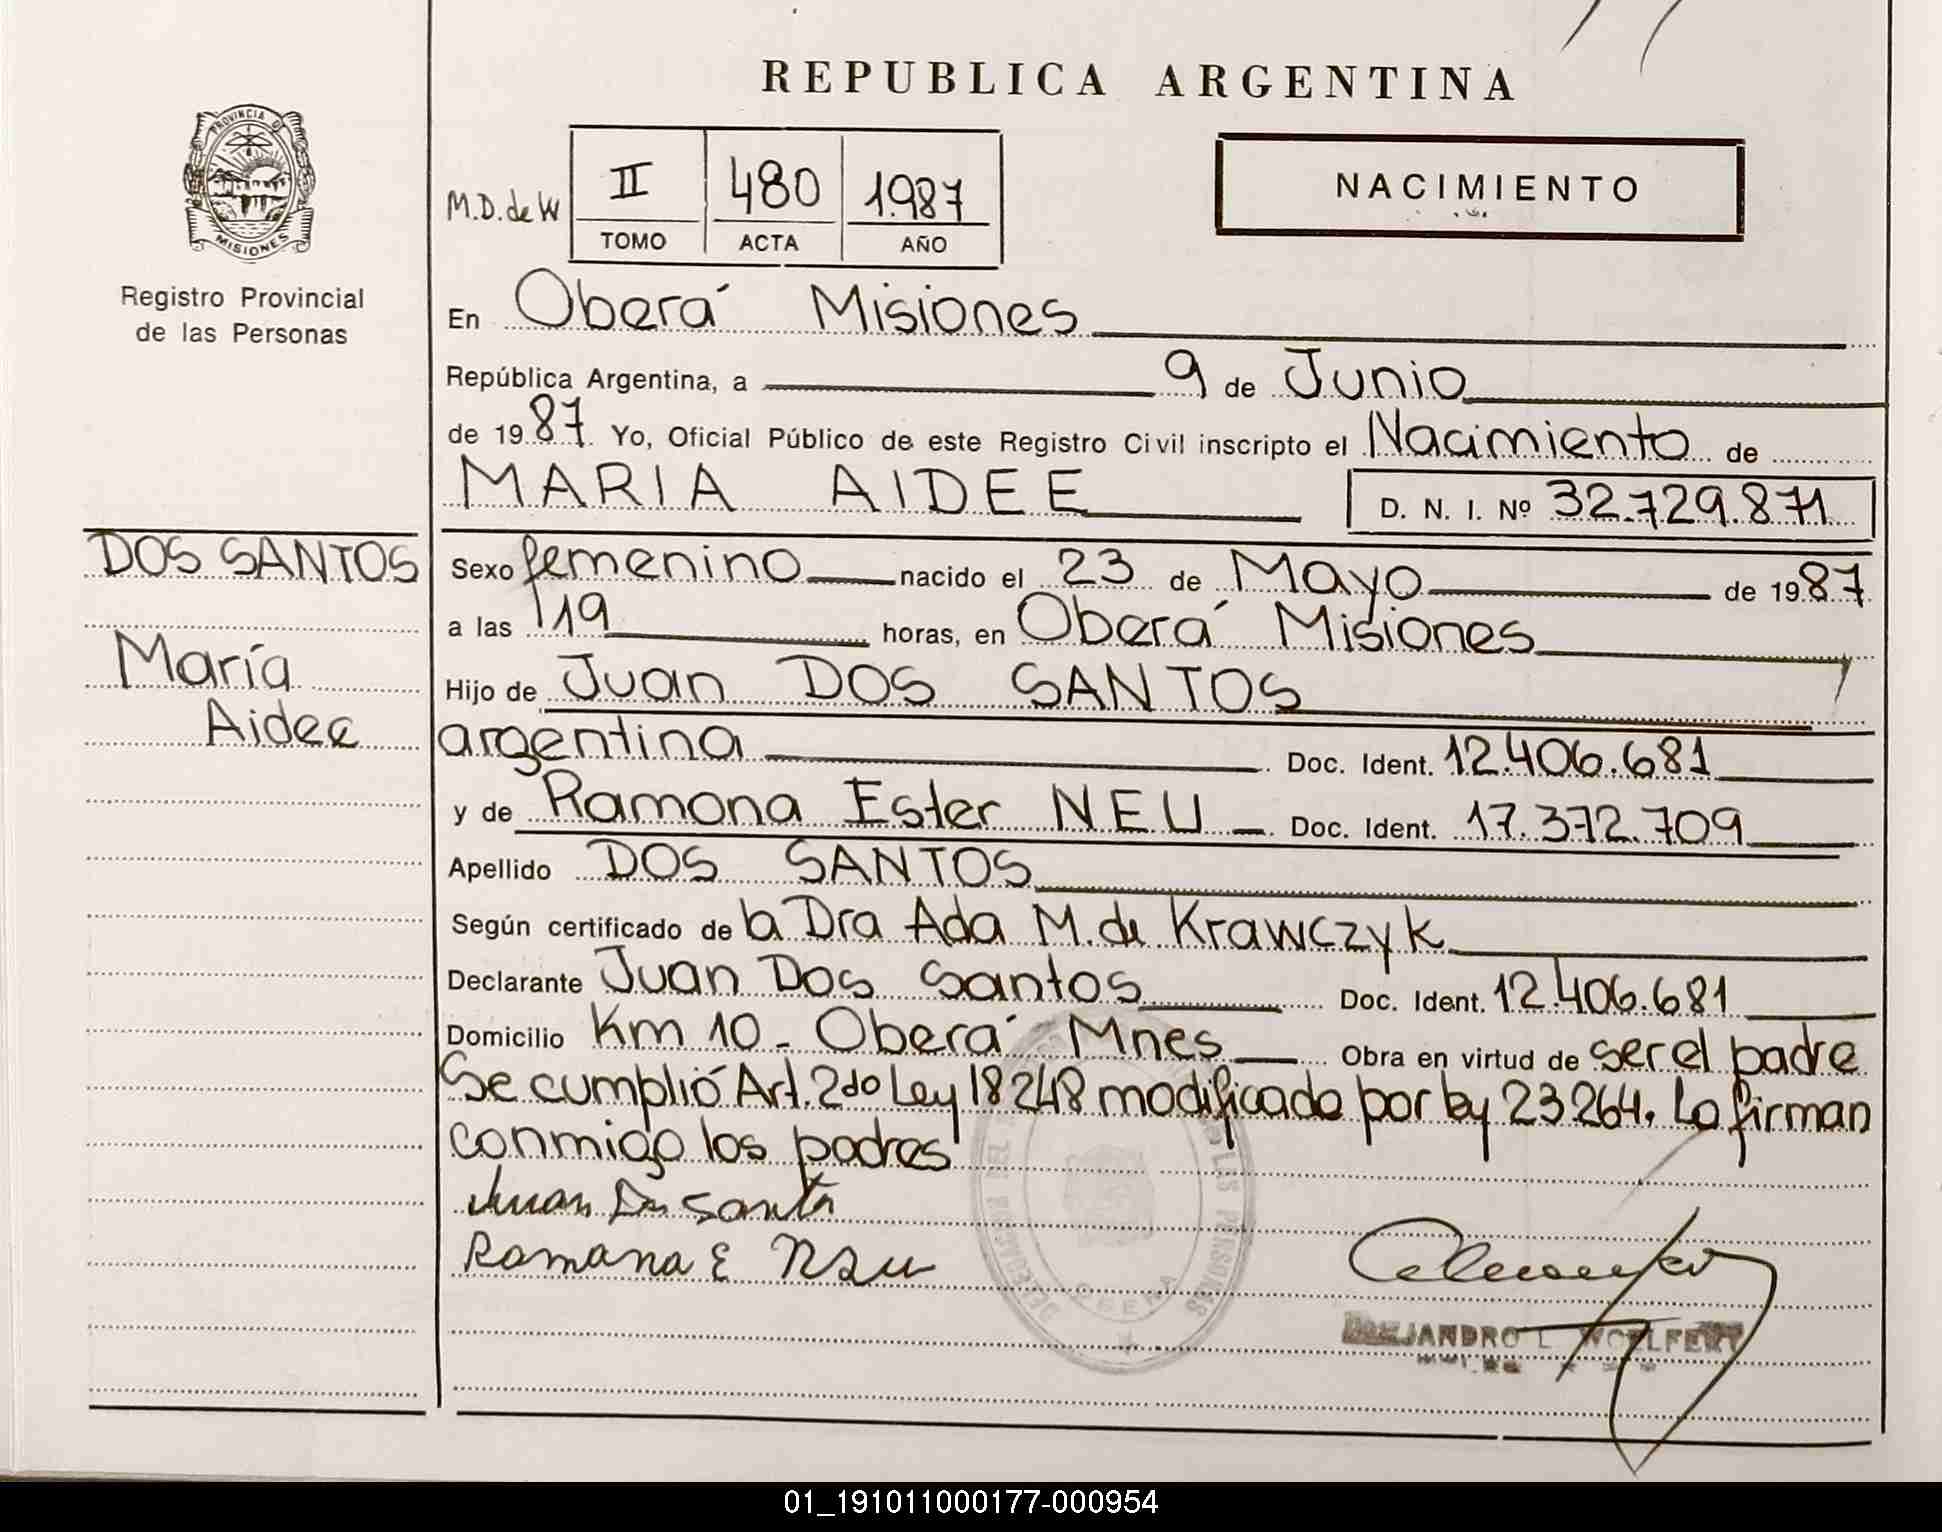 REPUBLICA ARGENTINA
PROVINCIA D
MISIONES
Registro Provincial
de las Personas
M.D. de W
II 480 1.987
TOMO ACTA AÑO
NACIMIENTO
En Oberá Misiones
República Argentina, a 9 de Junio
de 1987. Yo, Oficial Público de este Registro Civil inscripto el Nacimiento de
MARIA AIDEE
D. N. I. Nº 32.729.871
DOS SANTOS
María
Aidee
Sexo femenino nacido el 23 de Mayo de 1987
a las 19 horas, en Oberá Misiones
Hijo de Juan DOS SANTOS
argentina Doc. Ident. 12.406.681
y de Ramona Ester NEU Doc. Ident. 17.372.709
Apellido DOS SANTOS
Según certificado de la Dra Ada M. de Krawczyk
Declarante Juan Dos Santos Doc. Ident. 12.406.681
Domicilio Km 10 - Oberá Mnes Obra en virtud de ser el padre
Se cumplió Art. 2do Ley 18248 modificado por ley 23264. Lo firman
conmigo los padres
Juan Dos Santos
Ramona E Neu
LAS PERSONAS
OBERA
WOELFERT
01_191011000177-000954